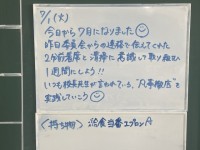 7/1(火)
今日から7月になりました☺
昨日委員会からの連絡で伝えてくれた
2分前着席と清掃に意識して取り組む
1週間にしよう!!
いつも校長先生が言われている、"凡事徹底"を
実践していこう☺
〈持ち物〉 給食当番エプロンA